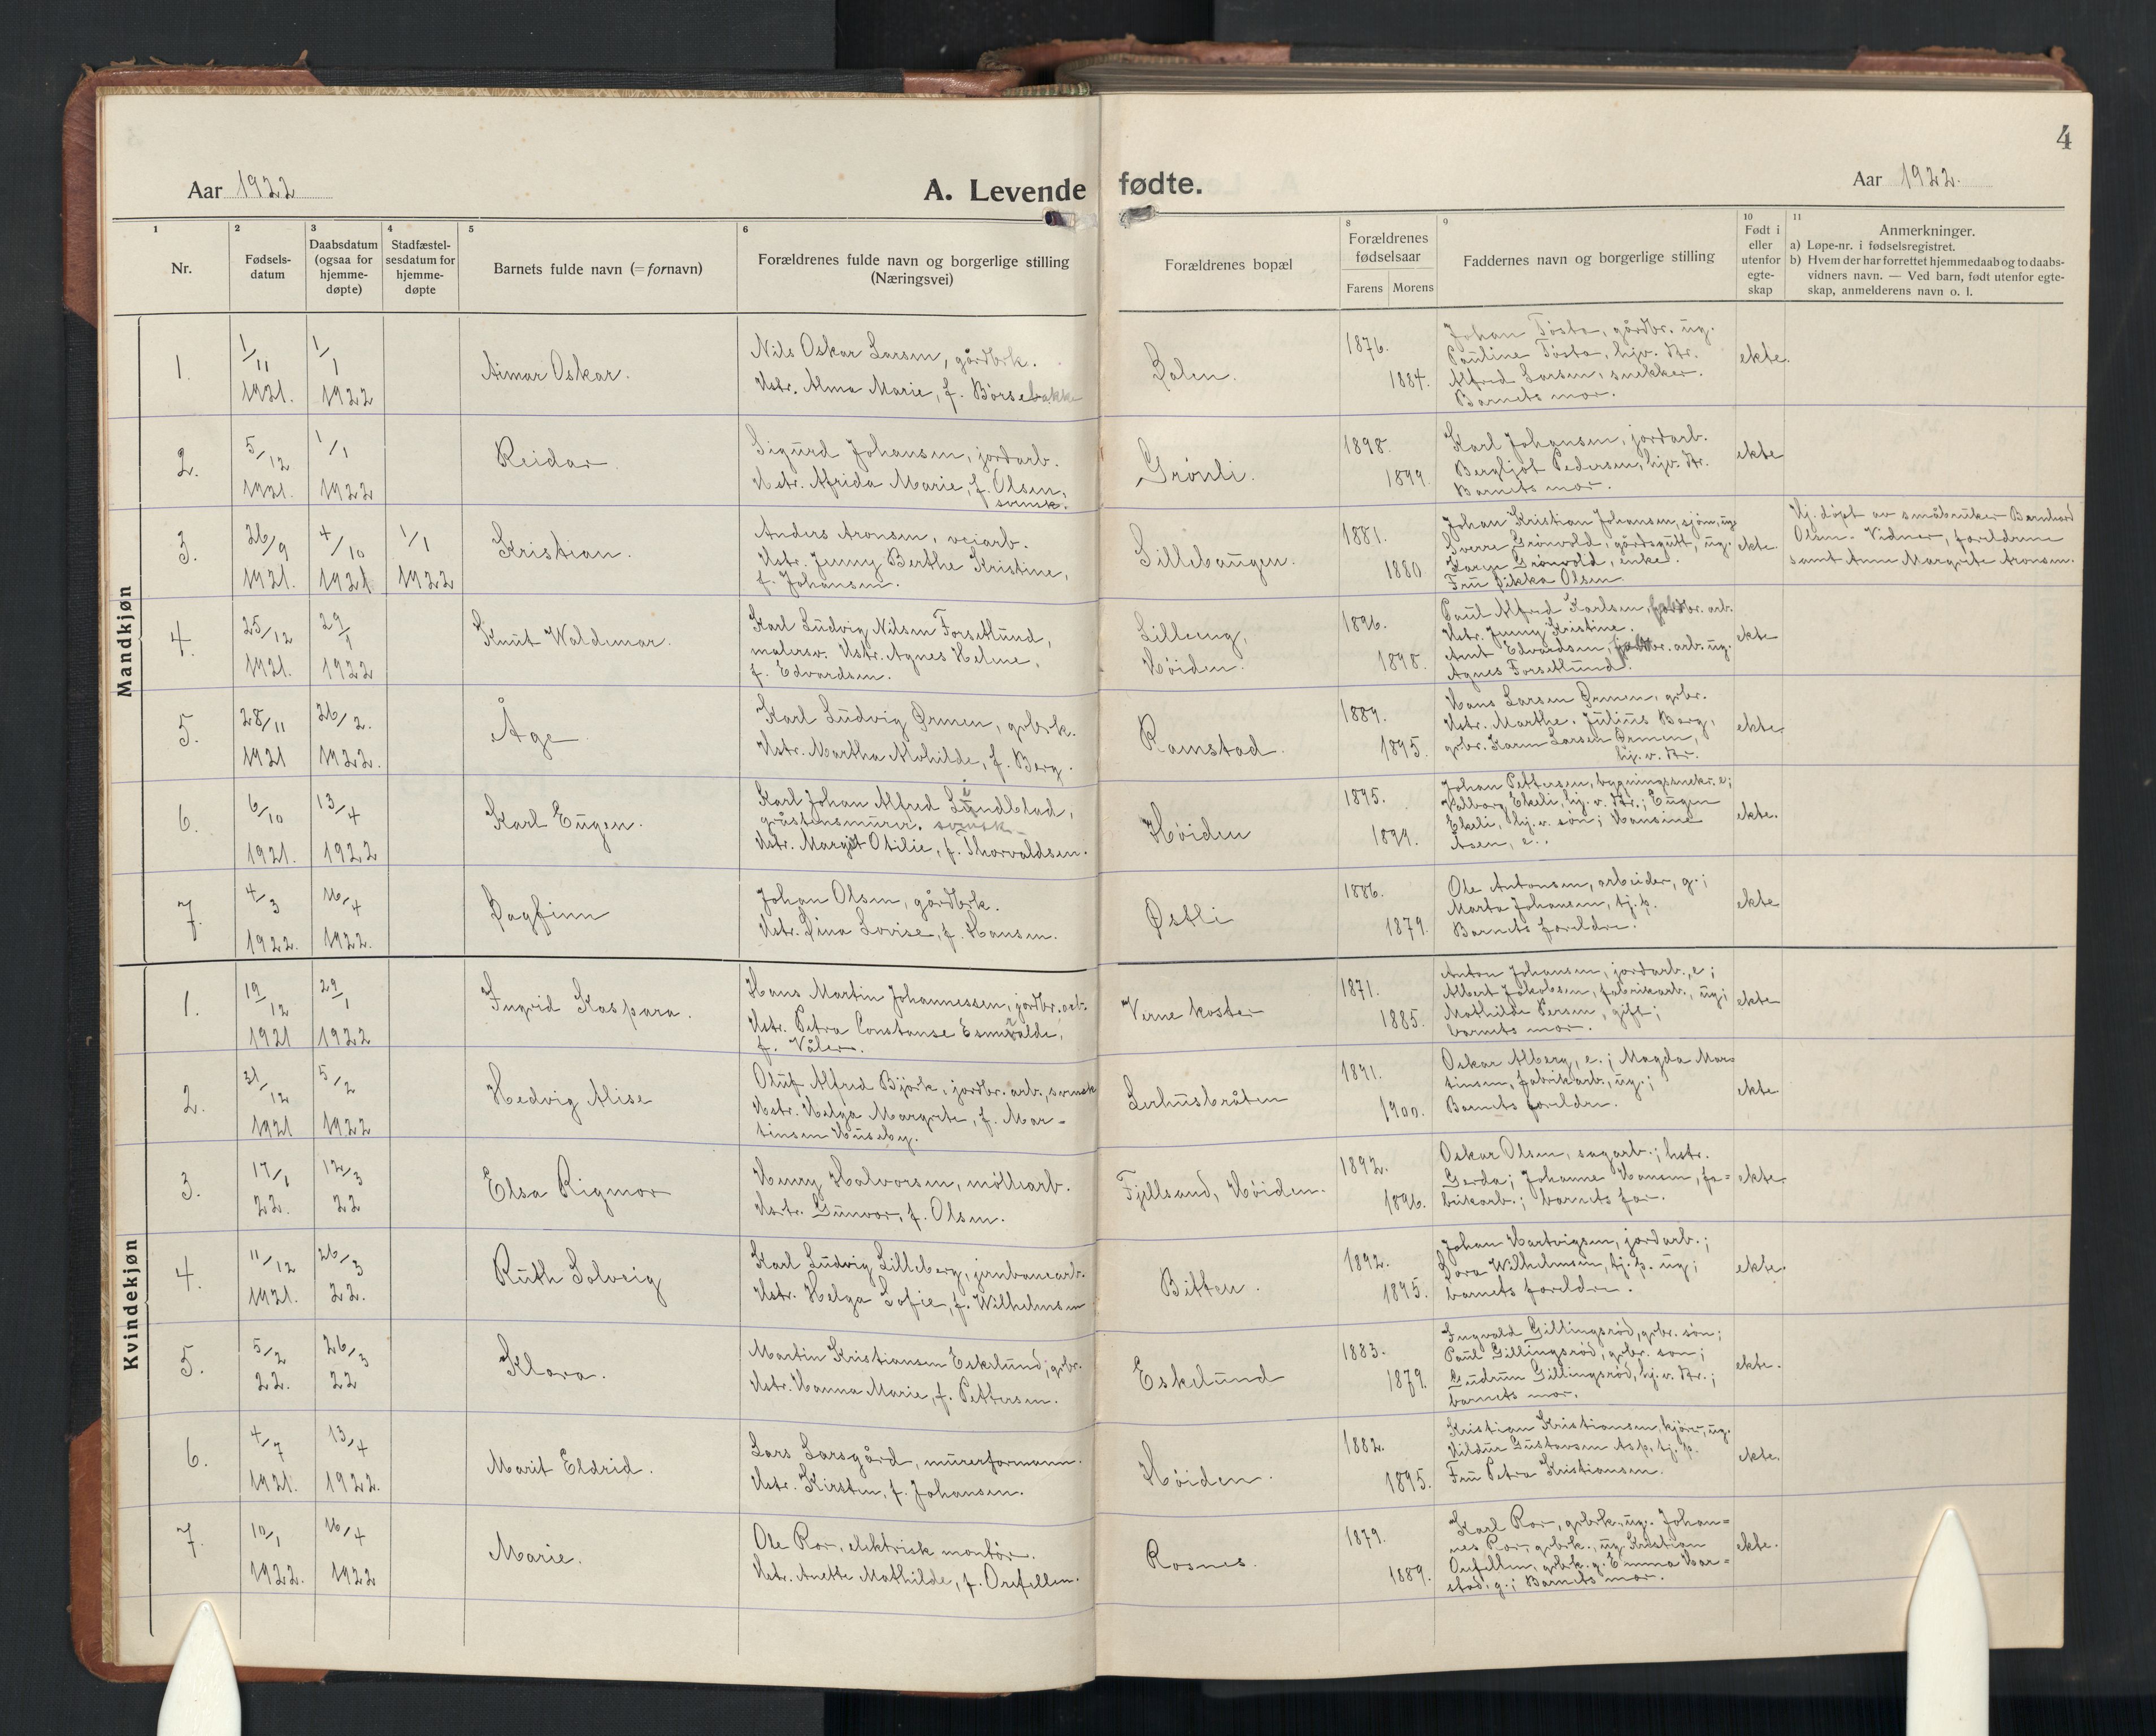 4
Aar 1922
A. Levende fødte.
Aar 1922.
1
Nr.
2
Fødsels-
datum
3
Daabsdatum
(ogsaa for
hjemme-
døpte)
4
Stadfæstel-
sesdatum for
hjemme-
døpte
5
Barnets fulde navn (= fornavn)
6
Forældrenes fulde navn og borgerlige stilling
(Næringsvei)
Forældrenes bopæl
8
Forældrenes
fødselsaar
Farens Morens
9
Faddernes navn og borgerlige stilling
10
Født i
eller
utenfor
egte-
skap
11
Anmerkninger.
a) Løpe-nr. i fødselsregistret.
b) Hvem der har forrettet hjemmedaab og to daabs-
vidners navn. — Ved barn, født utenfor egte-
skap, anmelderens navn o. l.
Mandkjøn
1.
1/11
1921.
1/1
1922
Aimar Oskar.
Nils Oskar Larsen, gårdbrk.
Hstr. Alma Marie, f. Børsebakke
Bolen.
1876.
1884.
Johan Tosta, gårdbr. ug.
Pauline Tosta, hjv. dtr.
Alfred Larsen, snekker.
Barnets mor.
ekte.
2.
5/12
1921.
1/1
1922
Reidar.
Sigurd Johansen, jordarb.
Hstr. Afrida Marie, f. Olsen,
svensk.
Grönli.
1898.
1899.
Karl Johansen, jordarb.
Bergljot Pedersen, hjv. dtr.
Barnets mor.
ekte
3.
26/9
1921.
4/10
1921
1/1
1922
Kristian.
Anders Aronsen, veiarb.
Hstr. Jenny Berthe Kristine,
f. Johansen.
Lillehaugen.
1881.
1880
Johan Kristian Johansen, sjøm, ug.
Sverre Grönvold, gårdsgutt, ug.
Karen Grönvold, enke.
Fru Olsen
ekte.
Hj. døpt av småbruker Bernhard
Olsen. Vidner, foreldrene
samt Anne Margrete Aronsen.
4.
25/12
1921.
29/1
1922
Knut Waldemar.
Karl Ludvig Nilsen Forsetlund,
malersv. Hstr. Agnes Helene,
f. Edvardsen.
Lilleeng,
Höiden.
1896.
1898.
Paul Alfred Karlsen, arb.
Hstr. Jenny Kristine.
Amt Edvardsen, arb. ug.
Agnes Forsetlund.
ekte
5.
28/11
1921
26/2.
1922.
Åge
Karl Ludvig Ørmen, grbrk.
Hstr. Martha Alvhilde, f. Berg.
Ramstad.
1889.
1895.
Hans Larsen Ørmen, grbr.
Hstr. Marthe. Julius Berg,
grbr. Karen Larsen Ørmen,
hj. v. dtr.
ekte
6.
6/10
1921.
13/4
1922
Karl Eugen.
Karl Johan Alfred Lundblad,
gråstensmurer. svensk
Hstr. Margit Otilie, f. Thorvaldsen.
Höiden
1895.
1899.
Johan Pettersen, bygningssnekr. e;
Valborg Ekeli, hj. v. dtr.; Eugen
Ekeli, hj. v. sön; Hansine
Åsen, e.
ekte.
7.
4/3
1922.
16/4
1922.
Dagfinn
Johan Olsen, gårdbrk.
Hstr. Dina Lovise, f. Hansen.
Østli
1886.
1879.
Ole Antonsen, arbeider, g.;
Marta Johansen, tj. p.
Barnets foreldre.
ekte
Kvindekjøn
1.
19/12
1921
29/1
1922
Ingrid Kaspara.
Hans Martin Johannessen, jordbr. arb.
Hstr. Petra Constanse Esmeralde,
f. Våler.
Verne kloster
1871.
1885.
Anton Johansen, jordarb., e;
Albert Jakobsen, fabrikarb., ug;
Mathilde Persen, gift;
barnets mor.
ekte
2.
31/12
1921
5/2
1922
Hedvig Alise
Oluf Alfred Björk, jordbr. arb., svensk
Hstr. Helga Margrete, f. Mar-
tinsen Huseby.
Lerhusbråten
1891.
1900.
Oskar Alberg, e.; Magda Mar-
tinsen, fabrikarb., ug.;
Barnets foreldre.
ekte
3.
17/1
22.
12/3
22
Elsa Rigmor
Henry Halvorsen, möllearb.
Hstr. Gunvor, f. Olsen.
Fjellsand, Höiden.
1892.
1896.
Oskar Olsen, sagarb.; hstr.
Gerda; Johanne Hansen, fa-
brikarb.; barnets far.
ekte.
4.
11/12
1921.
26/3
22.
Ruth Solveig
Karl Ludvig Lilleberg, jernbanearb.
Hstr. Helga Sofie, f. Wilhelmsen
Bitten.
1892.
1895.
Johan Hartvigsen, jordarb.;
Dora Wilhelmsen, tj. p. ug;
barnets foreldre.
ekte.
5.
5/2
22.
26/3
22
Klara.
Martin Kristiansen Eskelund, grbr.
Hstr. Hanna Marie, f. Pettersen.
Eskelund
1883.
1879.
Ingvald Gillingsröd, grbr. sön;
Paul Gillingsröd, grbr. sön;
Gudrun Gillingsröd, hj. v. dtr.;
barnets mor.
ekte.
6.
4/7
1921.
13/4
1922.
Marit Eldrid.
Lars Larsgård, murerformann.
Hstr. Kirsten, f. Johansen.
Höiden.
1882.
1895.
Kristian Kristiansen, kjörer, ug.
Hildur Gustavsen Asp, tj. p.
Fru Petra Kristiansen.
ekte.
7.
10/1
1922.
16/4
1922
Marie.
Ole Ror, elektrisk montör.
Hstr. Anette Mathilde, f. Orefellen.
Rosnes.
1879.
1889.
Karl Ror, grbrk., ug. Johan-
nes Ror, grbrk., ug Kristian
Orefellen, grbrk. g. Emma Har-
stad, g.; Barnets mor.
ekte.